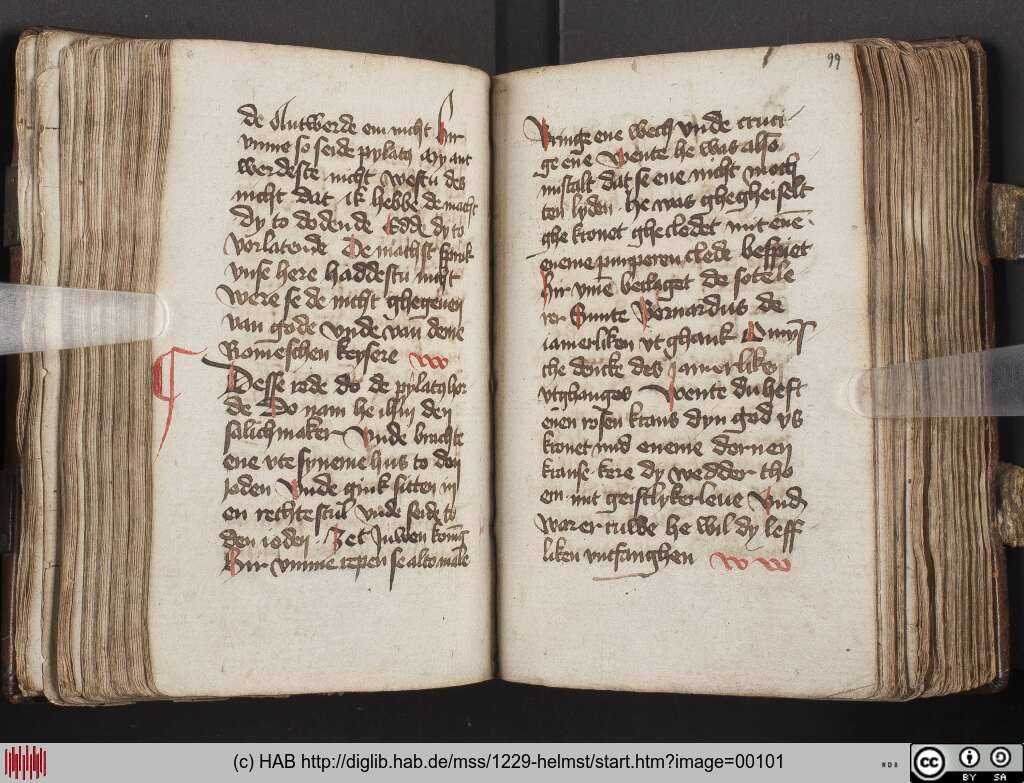 de Antwerde em nicht hir
vmme so seide pylatus My ant
werdeste nicht westu des
nicht dat ik hebbe de macht
dy to dodende Edder dy to
vorlatende De macht sprok
vnse here haddestu nicht
were se de nicht ghegeuen
van gode vnde van deme
Romeschen keysere
Desse rede do de pylatus hor
de Do nam he ihesum den
salichmaker Vnde brachte
ene vte syneme hus to den
ioden Vnde gink sitten in
en rechte stul Vnde seide to
den ioden Zet Juwen konig
Hir vmme repen se alto male
99
Bringe ene wech vnde cruci
ge ene Wente he was also
mistalt dat se ene nicht moch
ten lyden he was ghegheiselt
ghe kronet ghecledet mit
eneme purperen clede bespiet
hir vme beclaget de sote le
rer Sunte Bernardus de
iamerliken vt ghank
che dencke des iamerliken
vtghanges Wente du heft
enen rosen krans dyn god ys
kronet mid eneme dornen
kranse kere dy wedder tho
em mit geistlyker leue Vnd
warer ruwe he wil dy leff
liken vntfanghen
(c) HAB http://diglib.hab.de/mss/1229-helmst/start.htm?image=00101
HAB
cc BY SA